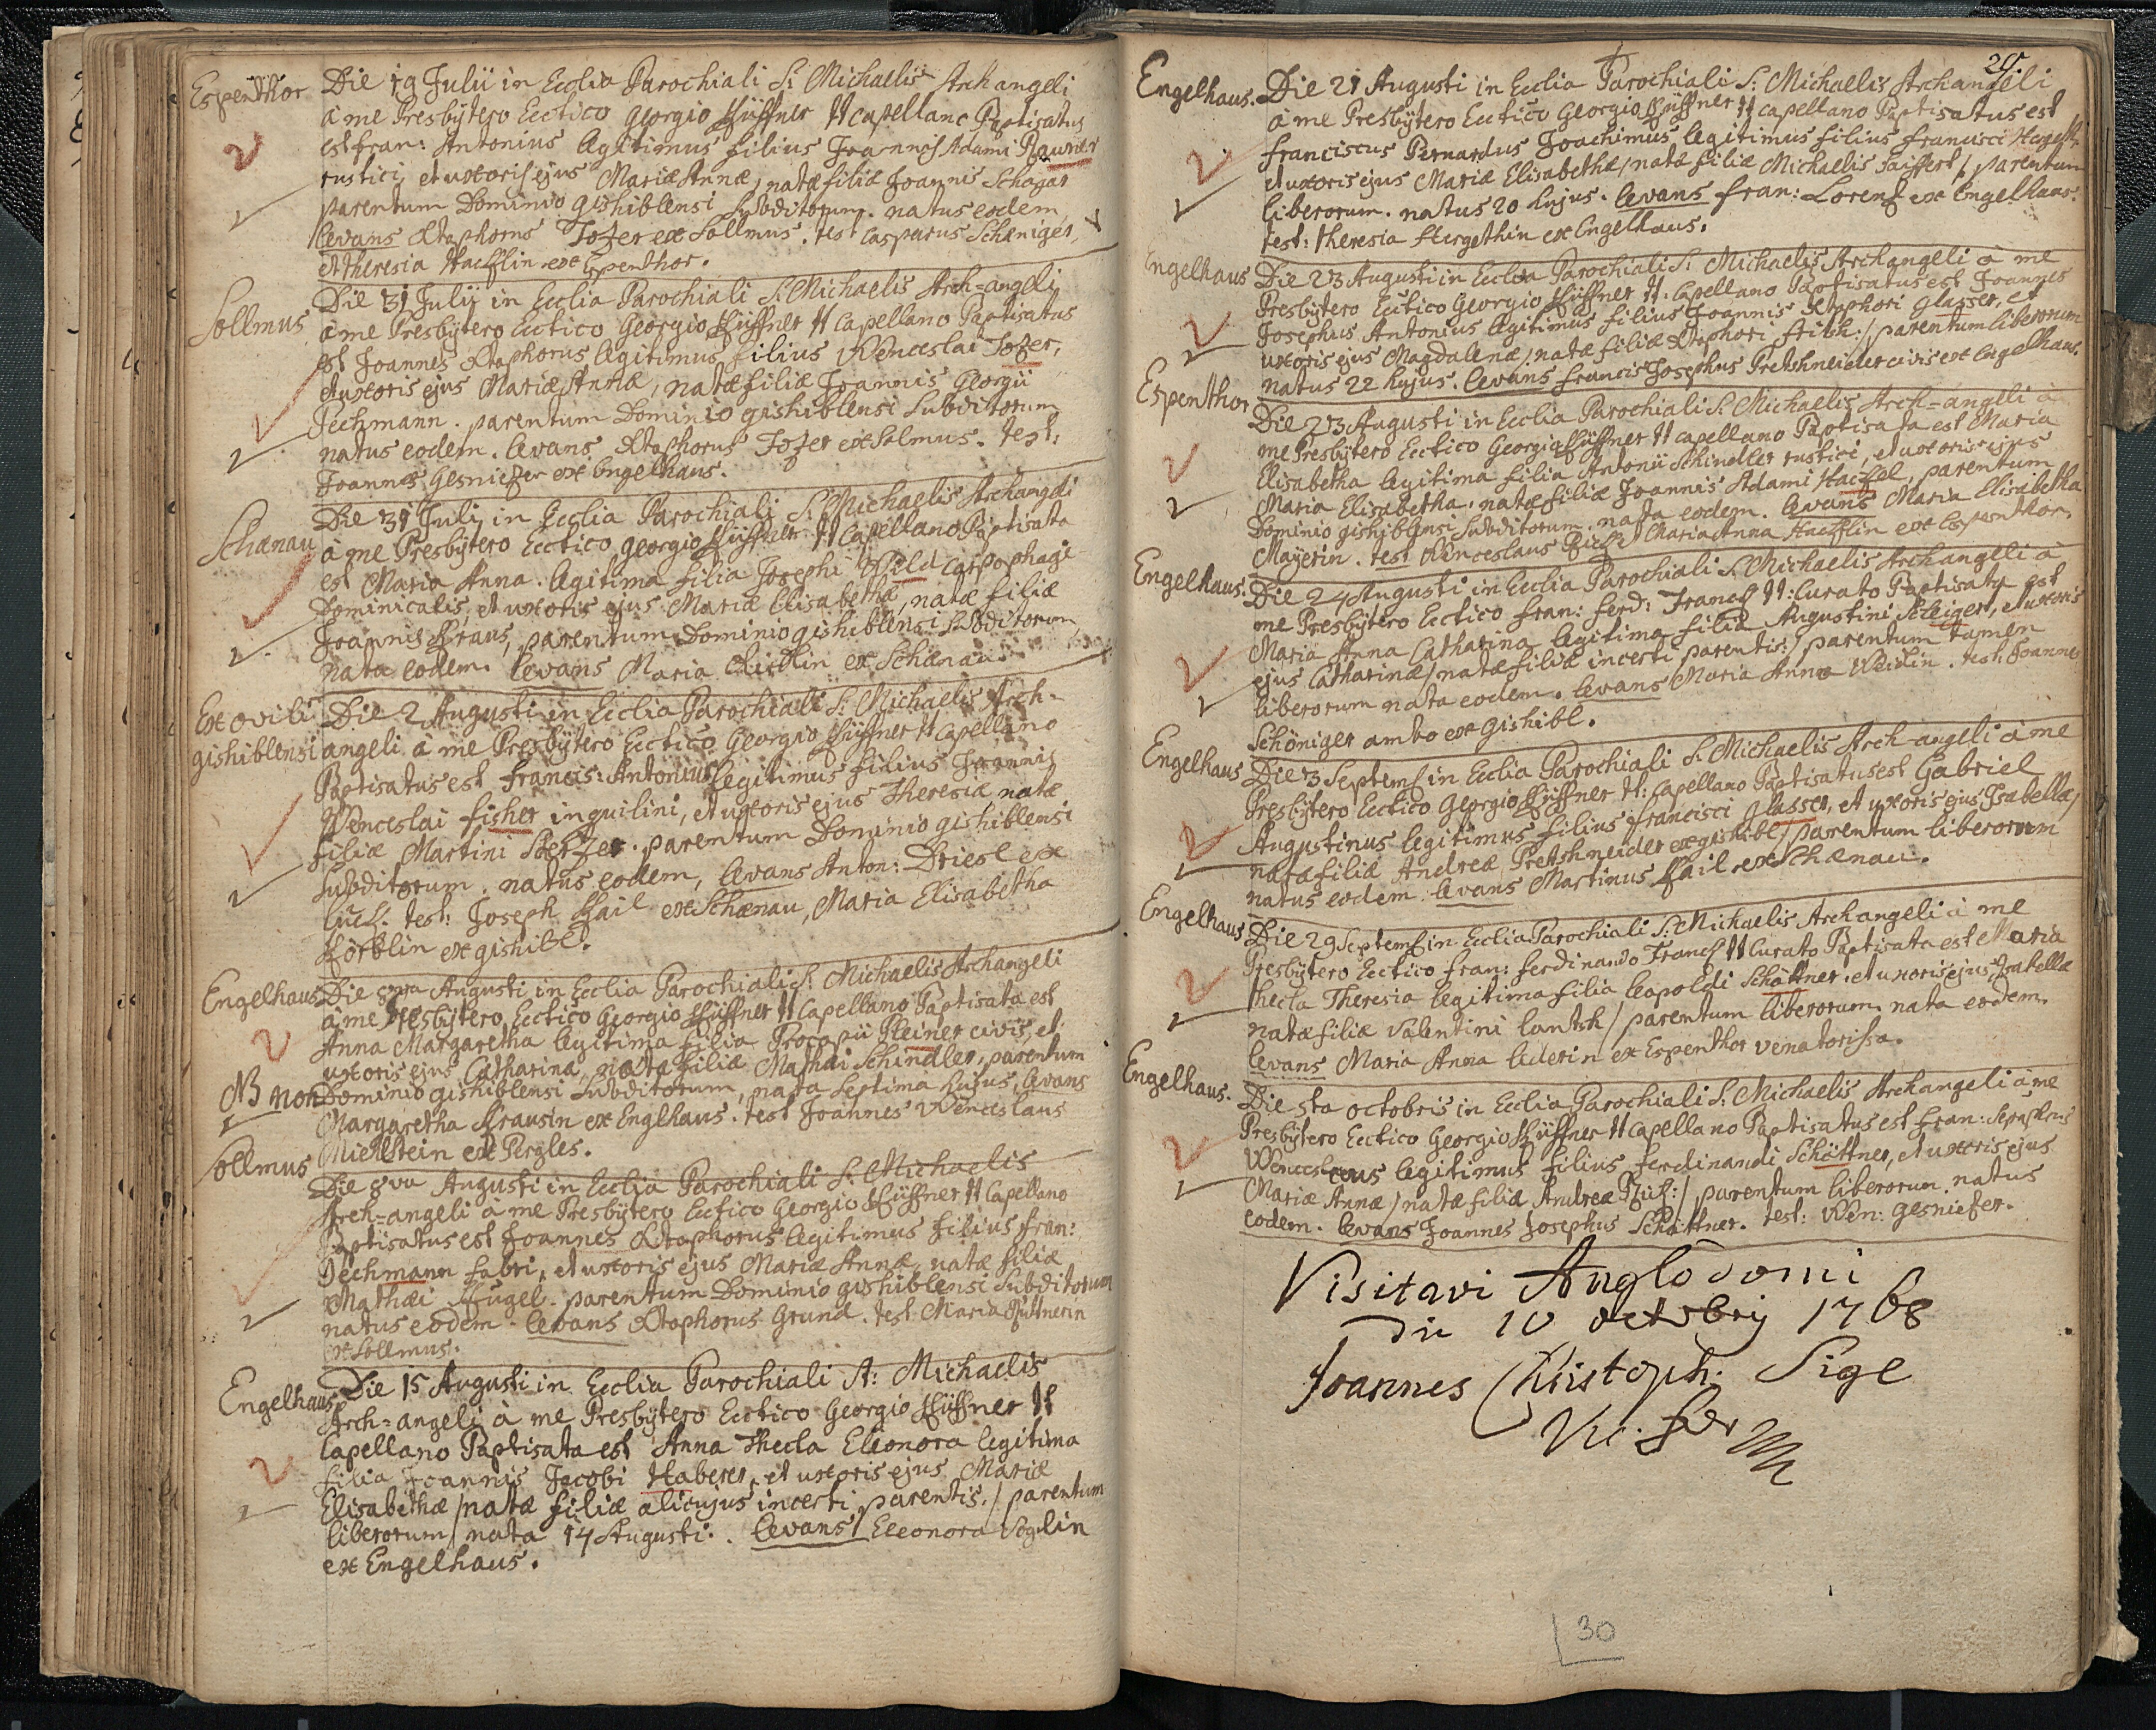 Espenthor
Die 19 Julii in Ecclia Parochiali S: Michaelis Arch angeli
à me Presbÿtero Ecctico Georgio Küffner tt capellano Paptisatus
est fran: Antonius legitimus filius Joannis Adami Paurier
rustici, et uxoris ejus Mariæ Annæ, natæ filiæ Joannis Schagar
parentum Dominio gishiblensi Subditorum. natus eodem
levans Xtophorus Tozer ex Sollmus. test Casparus Schæniger,
et theresia Haefflin ex Espenthor.
Sollmus
Die 31 Julij in Ecclia Parochiali S: Michaelis Arch=angeli
à me Presbÿtero Ecctico Georgio Küffner tt Capellano Paptisatus
est Joannes Xtophorus legitimus filius Wenceslai Tozer,
et uxoris ejus Mariæ Annæ, natæ filiæ Joannis Georgii
Pechmann. parentum Dominio gishiblensi Subditorum
natus eodem. levans Xtophorus Tozer ex Solmus. test:
Joannes Gesniezer ex Engelhaus.
Schænau
Die 31 Julij in Ecclia Parochiali S: Michaelis Archangeli
à me Presbÿtero Ecctico Georgio Küffner tt Capellano Paptisata
est Maria Anna. legitima filia Josephi Wild carpophagi
Dominicalis, et uxoris ejus Mariæ Elisabethæ, natæ filiæ
Joannis Kraus, parentum Dominio gishiblensi Subditorum,
nata eodem. levans Maria ex Schænau.
Ex ovili
gishiblensi
Die 2 Augusti in Ecclia Parochiali S: Michaelis Arch=
angeli à me Presbÿtero Ecctico Georgio Küffner tt Capellano
Paptisatus est, francis: Antonius legitimus filius Joannis
Wenceslai fisher inquilini, et uxoris ejus Theresiæ natæ
filiæ Martini Sterzer. parentum Dominio gishiblensi
Subditorum. natus eodem, levans Anton: Driesl ex
Luch. test: Joseph Kail ex Schænau, Maria Elisabetha
Körblin ex gishibl.
Engelhaus
Die 8va Augusti in Ecclia Parochiali S: Michaelis Archangeli
à me Presbÿtero Ecctico Georgio Küffner tt Capellano Paptisata est
Anna Margaretha legitima filia Procopii Kleiner civis, et
uxoris ejus Catharina, nata filiæ Mathæi Schindler, parentum
NB non
Dominio gishiblensi Subditorum, nata Septima hujus, levans
Margaretha Krausin ex Englhaus. test Joannes Wenceslaus
Miehlstein ex Pergles.
Sollmus
Die 8va Augusti in Ecclia Parochiali S: Michaelis
Arch=angeli à me Presbÿtero Ecctico Georgio Küffner tt Capellano
Paptisatus est Joannes Xtophorus legitimus filius fran:
Pechmann fabri, et uxoris ejus Mariæ Annæ, natæ filiæ
Mathæi Kugel. parentum Dominio gishiblensi Subditorum
natus eodem. levans Xtophorus Grund. test Maria Püttnerin
ex Sollmus.
Engelhaus
Die 15 Augusti in Ecclia Parochiali St: Michaelis
Arch=angeli à me Presbÿtero Ecctico Georgio Küffner tt
Capellano Paptisata est Anna Thecla Eleonora legitima
filia Joannis Jacobi Haberer, et uxoris ejus Mariæ
Elisabethæ /natæ filiæ alicujus incerti parentis./ parentum
liberorum / nata 14 Augusti. levans Eleonora Voglin
ex Engelhaus.
29.
Engelhaus.
Die 21 Augusti in Ecclia Parochiali S: Michaelis Archangeli
à me Presbÿtero Ecctico Georgio Küffner tt capellano Paptisatus est
franciscus Pernardus Joachimus legitimus filius francisci Hergeth
et uxoris ejus Mariæ Elisabethæ/ natæ filiæ Michaelis Saiffert/, parentum
liberorum. natus 20 hujus. levans fran: Lorenz ex Engelhaus.
test: theresia Hergethin ex Engelhaus.
Engelhaus
Die 23 Augusti in Ecclia Parochiali S: Michaelis Archangeli à me
Presbÿtero Ecctico Georgio Küffner tt. Capellano Paptisatus est Joannes
Josephus Antonius legitimus filius Joannis Xtophori glasser, et
uxoris ejus Magdalenæ, natæ filiæ Xtophori frisch:/ parentum liberorum
natus 22 hujus. levans francis Josephus Pretshneider civis ex Engelhaus.
Espenthor
Die 23 Augusti in Ecclia Parochiali S: Michaelis Arch=angeli à
me Presbÿtero Ecctico Georgio Küffner tt capellano Paptisata est Maria
Elisabetha legitima filia Antonii Schindler rustici, et uxoris ejus
Maria Elisabetha. natæ filiæ Joannis Adami Haeffel, parentum
Dominio gishiblensi Subditorum. nata eodem. levans Maria Elisabetha
Mayerin. test Wenceslaus Maria Anna Haefflin ex Espenthor.
Engelhaus.
Die 24 Augusti in Ecclia Parochiali S: Michaelis Archangeli à
me Presbÿtero Ecctico fran: ferd: Francz tt: Curato Paptisata est
Maria Anna Catharina legitima filia Augustini Schleiger, et uxoris
ejus Catharinæ/ natæ filiæ incerti parentis:/ parentum tamen
liberorum nata eodem. levans Maria Anna Weidin. test. Joannes
Schöniger ambo ex gishibl.
Engelhaus
Die 3 Septemb in Ecclia Parochiali S: Michaelis Arch-angeli à me
Presbÿtero Ecctico Georgio Küffner tt: Capellano Paptisatus est Gabriel
Augustinus legitimus filius francisci glasser, et uxoris ejus Isabellæ/
natæ filiæ Andreæ Pretshneider ex gishibl/ parentum liberorum
natus eodem. levans Martinus Kail ex Schænau.
Engelhaus
Die 29 Septemb in Ecclia Parochiali S: Michaelis Archangeli à me
Presbÿtero Ecctico fran: ferdinando Francz tt Curato Paptisata est Maria
thecla Theresia legitima filia leopoldi Schöttner. et uxoris ejus Isabellæ
natæ filiæ Valentini lantsh/ parentum liberorum nata eodem.
levans Maria Anna lederin ex Espenthor venatorissa.
Engelhaus.
Die 5ta octobris in Ecclia Parochiali S: Michaelis Archangeli à me
Presbÿtero Ecctico Georgio Küffner tt capellano Paptisatus est fran: Seraphicus
Wenceslaus legitimus filius ferdinandi Schöttner, et uxoris ejus
Mariæ Annæ/ natæ filiæ Andreæ :/ parentum liberorum. natus
eodem. levans Joannes Josephus Schöttner. test: Wen: gesniefer.
Visitavi Anglodomi
die 10 octobrij 1768
Joannes Christoph: Sigl
Vic. for
30